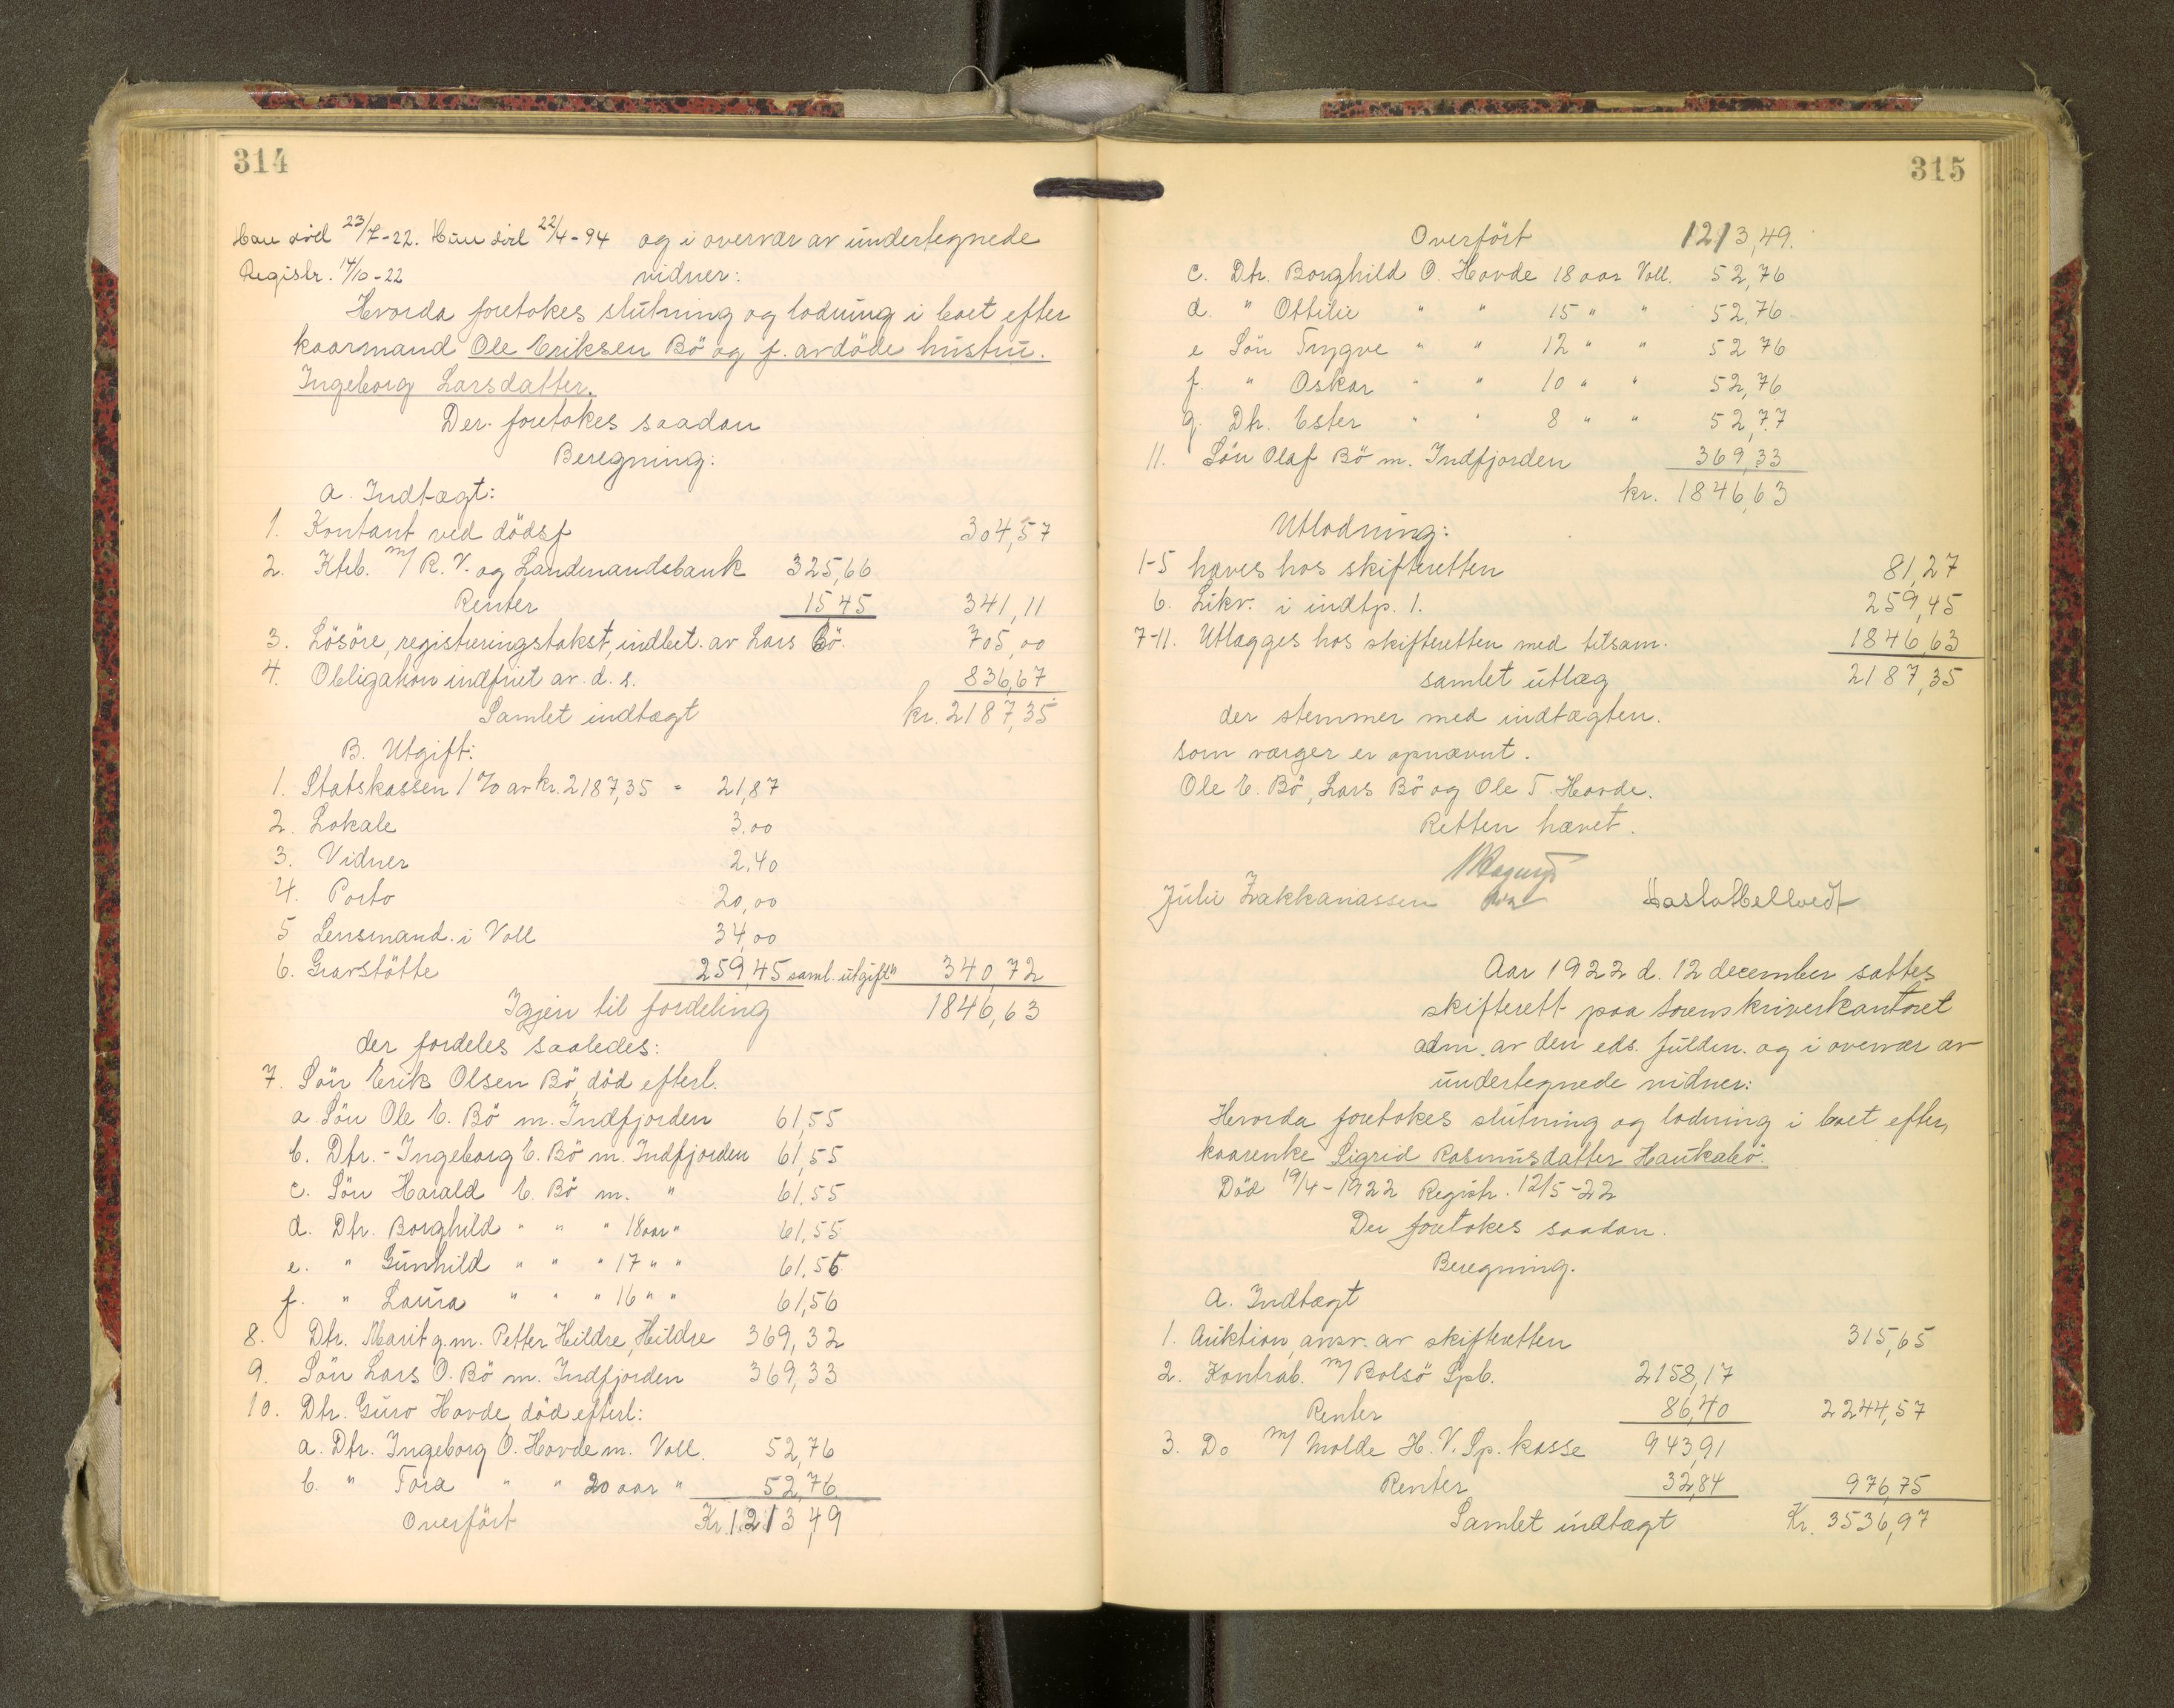 314
Han död 23/7-22. Hun död 22/4-94 og i overvær av undertegnede
Registr. 14/10-22 vidner:
Hvorda foretokes slutning og lodning i boet efter
kaarmand Ole Eriksen Bö og f. avdöde hustru.
Ingeborg Larsdatter.
Der foretokes saadan
Beregning:
a. Indtægt:
1. Kontant ved dödsf 304,57
2. Ktrb. m/ R. V. og Landmandsbank 325,66
Renter 15 45 341,11
3. Lösöre, registreringstakst, indbet. av Lars Bö. 705,00
4. Obligation indfriet av d. s. 836,67
Samlet indtægt kr. 2187,35
B. Utgift:
1. Statskassen 1 % av kr. 2187,35 = 21,87
2. Lokale 3.00
3. Vidner 2.40
4. Porto 20,00
5 Lensmand. i Voll 34,00
6. Gravstötte 259,45 saml. utgift" 340,72
Igjen til fordeling 1846,63
der fordeles saaledes:
7. Sön Erik Olsen Bö, död efterl.
a. Sön Ole E. Bö m. Indfjorden 61,55
b. Dtr. - Ingeborg E. Bö m. Indfjorden 61,55
c. Sön Harald E. Bö m. " 61.55
d. Dtr. Borghild " " " 18 aar " 61,55
e. " Gunhild " " " 17 " " 61.56
f. " Laura " " " 16 " " 61,56
8. Dtr. Marit g. m. Petter Hildre, Hildre 369,32
9. Sön Lars O. Bö m. Indfjorden 369,33
10. Dtr. Guro Hovde, död efterl:
a. Dtr. Ingeborg O. Hovde m. Voll. 52,76
b. " Tora " " 20 aar " 52,76
Overfört Kr. 1213,49
315
Overfört 1213,49.
c. Dtr. Borghild O. Hovde 18 aar Voll. 52,76
d. " Ottilie " " 15 " " 52,76
e Sön Trygve " " 12 " " 52 76
f. " Oskar " " 10 " " 52,76
g. Dtr. Ester " " 8 " " 52,77
11. Sön Olaf Bö m. Indfjorden 369,33
kr. 1846,63
Utlodning:
1-5 hæves hos skifteretten 81,27
6. Likv. i indtp. 1. 259,45
7-11. Utlægges hos skifteretten med tilsam. 1846,63
samlet utlæg 2187,35
der stemmer med indtægten.
som værger er opnævnt.
Ole E. Bö, Lars Bö og Ole T. Hovde.
Retten hævet.
Julie Zakkariassen
Aar 1922 d. 12 december sattes
skifterett paa Sorenskriverkontoret
adm. av den eds. fuldm. og i overvær av
undertegnede vidner:
Hvorda foretokes slutning og lodning i boet efter,
kaarenke Sigrid Rasmusdatter Haukabö.
Död 19/4-1922 Registr. 12/5-22
Der foretokes saadan.
Beregning.
A. Indtægt
1. Auktion, ansv. av skifteretten 315,65
2. Kontrab. m/ Bolsö Spb. 2158,17
Renter 86,40 2244,57
3. Do m/ Molde H. V. Sp. kasse 943,91
Renter 32,84 976,75
Samlet indtægt Kr. 3536,97